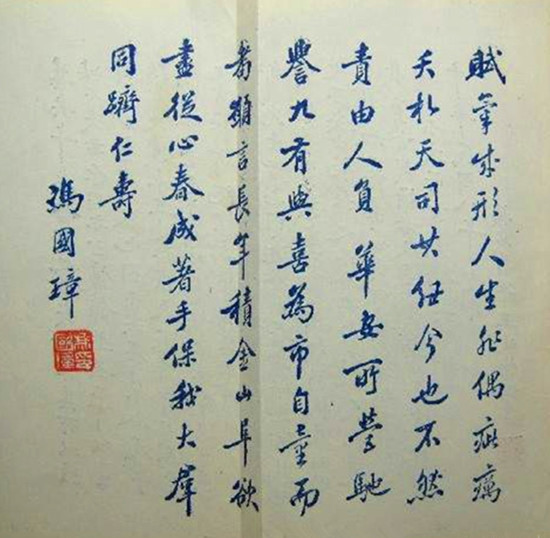 賦氣成形人生非偶疵癘
夭札天司其任今也不然
責由人負華安所營馳
譽九有與喜為市自童而
耇願言長年積金山阜欲
盡從心春成著手保我大羣
同躋仁壽
馮國璋